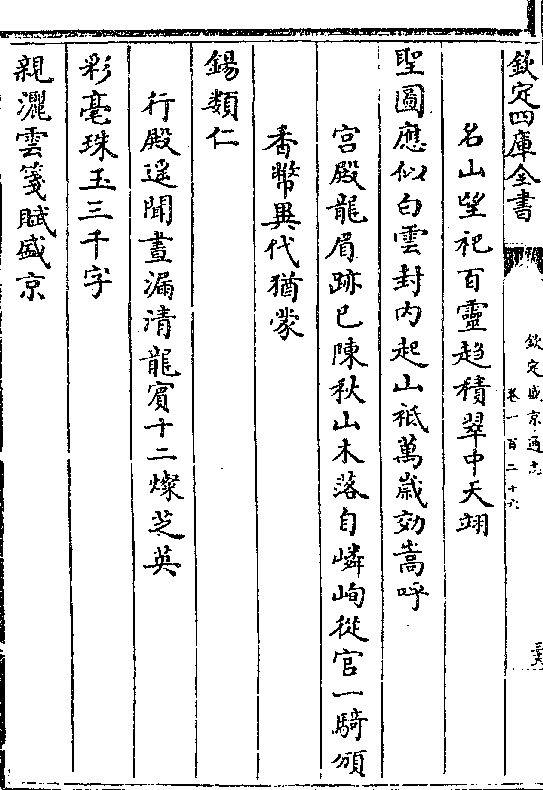 欽定四庫全書
欽定盛京通志
卷一百二十六
名山望祀百靈趋積翠中天翊
聖圖應似白雲封内起山祗萬嵗効嵩呼
宫殿龍眉跡已陳秋山木落自嶙峋從官一騎頒
香幣異代猶蒙
錫類仁
行殿遥聞晝漏清龍賓十二燦芝英
彩毫珠玉三千字
親灑雲箋賦盛京